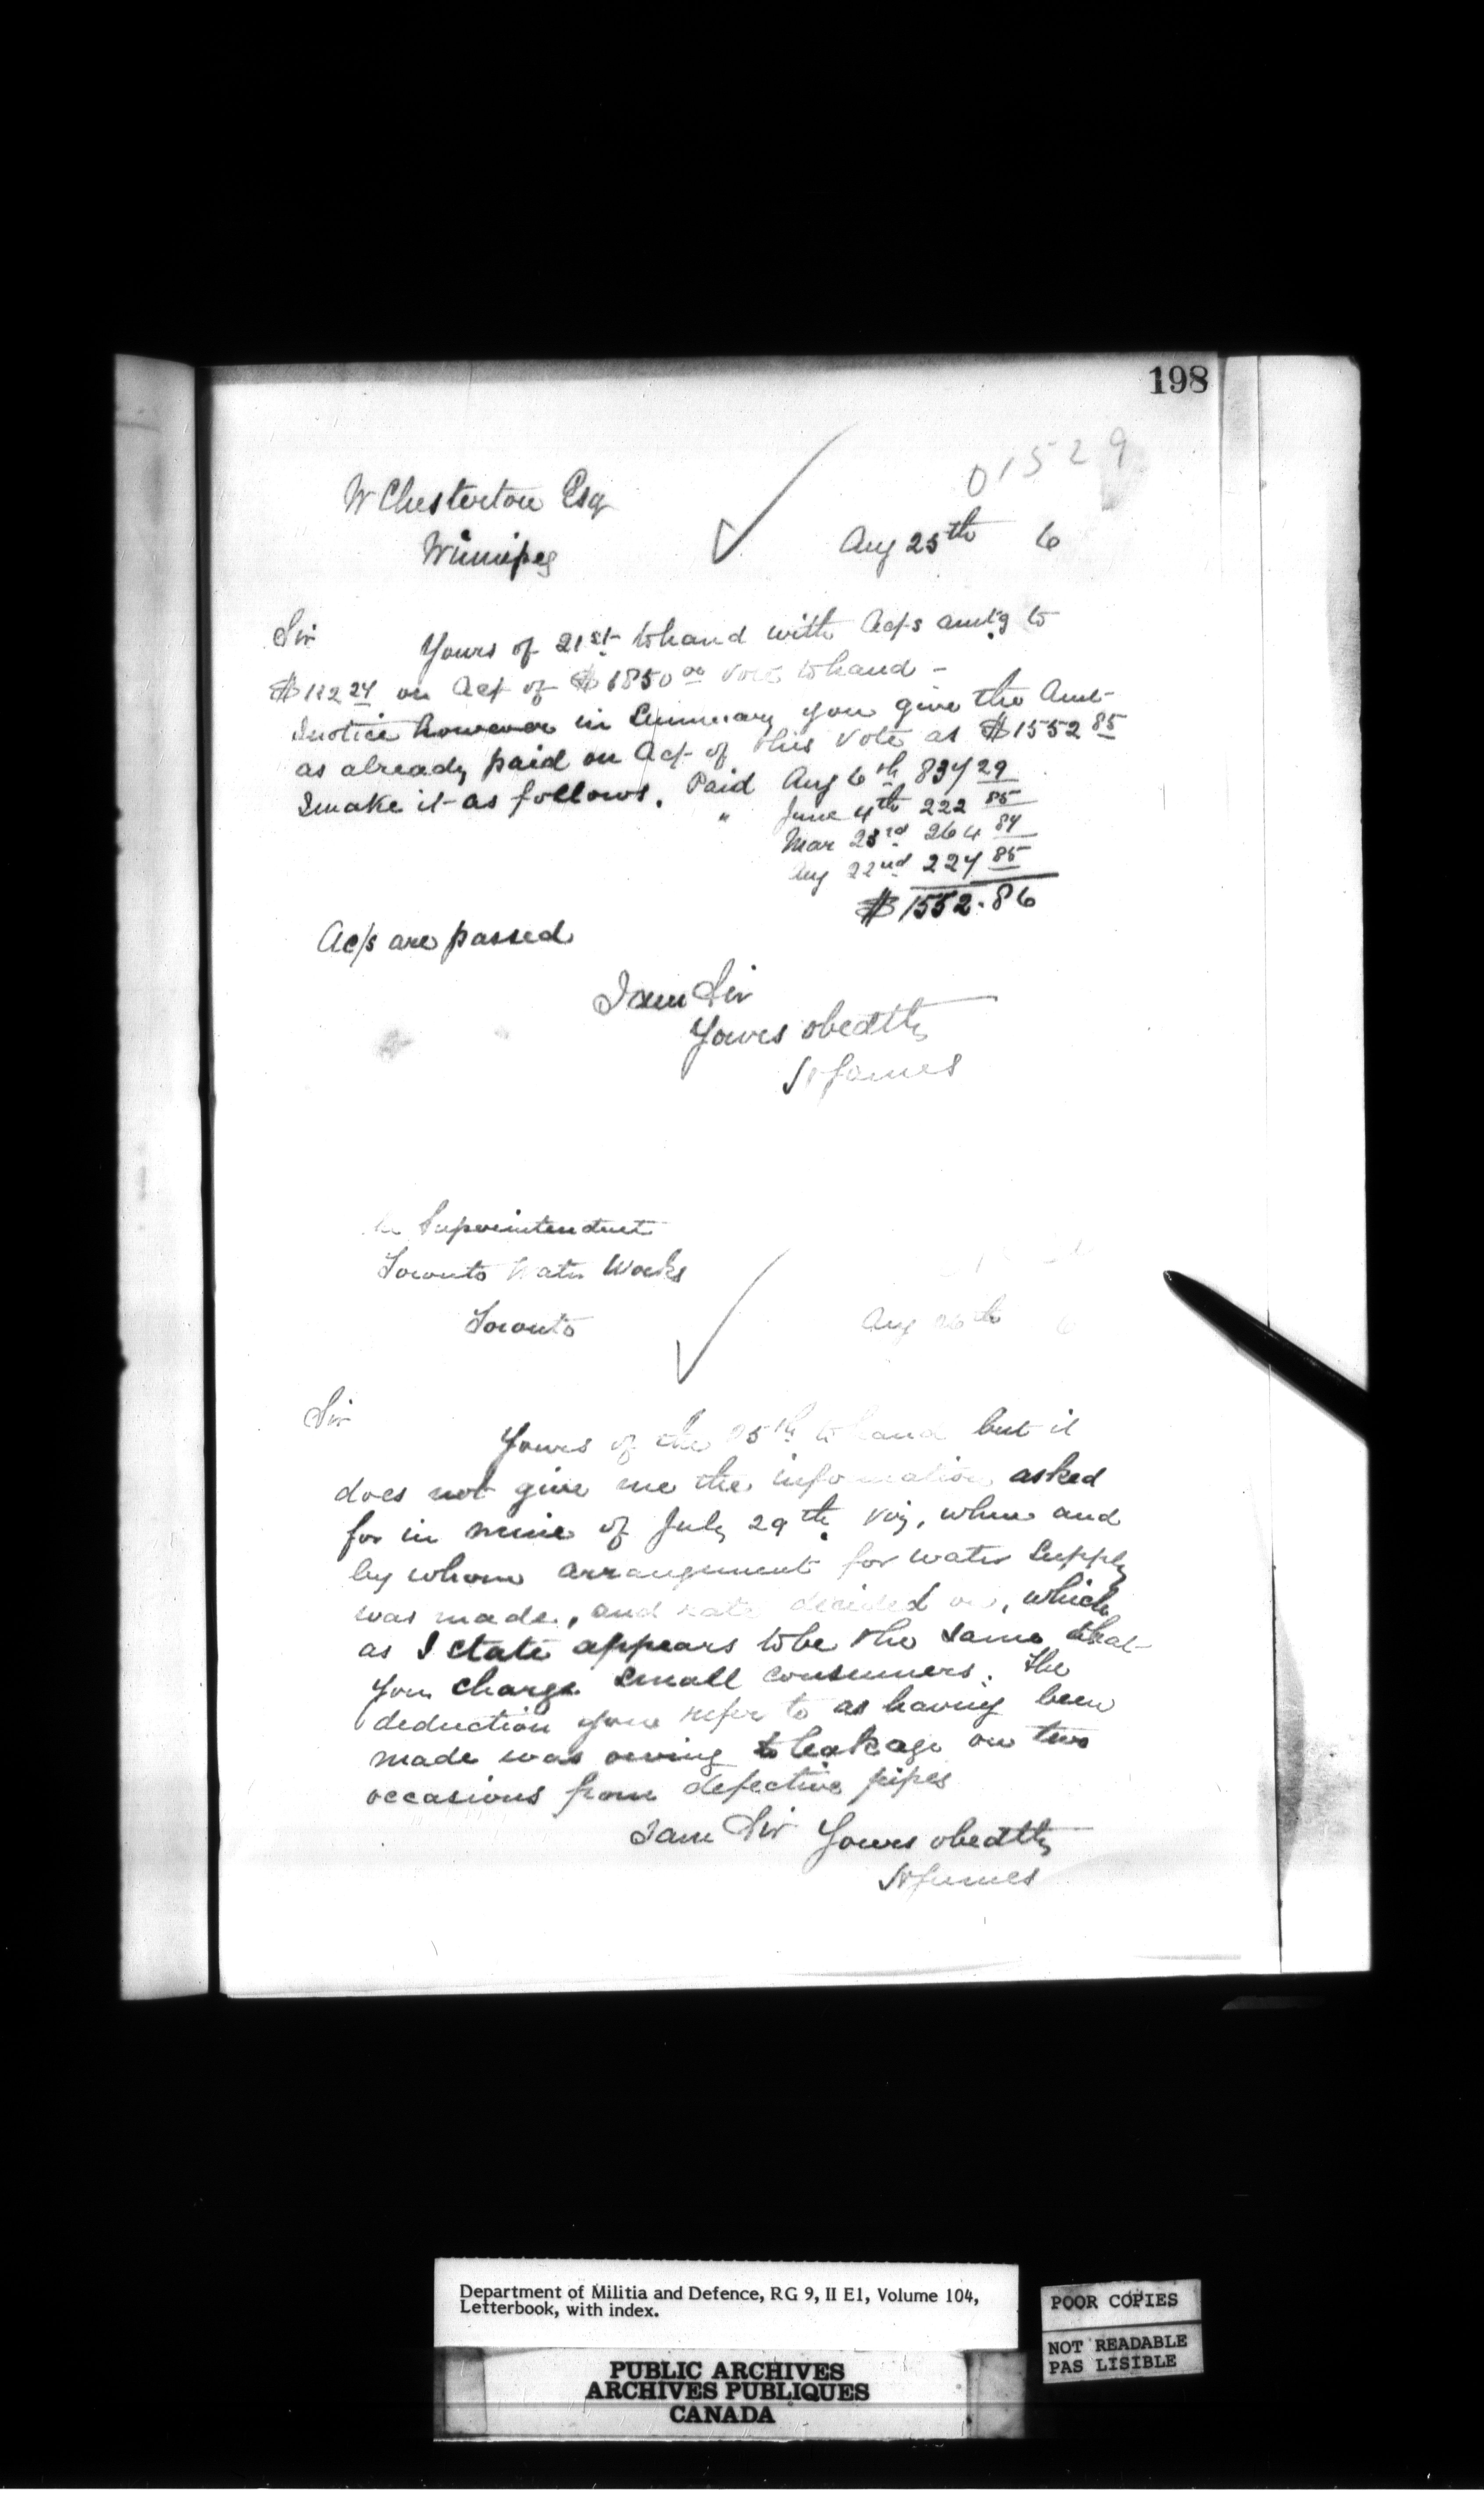 198
01529
W Chesterton Esq
Winnipeg
Aug 25th 6
Sir Yours of 21st to hand with Acfs amtg to
on Acf of $1850 00 Vote to hand -
I notice however in Summary you give the Amt
as already paid on Acf of this Vote as $1552 85
I make it as follows. Paid Aug 6th 837 29
" June 4th 222 85
Mar 23rd 264 84
Aug 22nd 227 85
$1552.86
Ac/s are passed
I am Sir
Yours obedtly
H James
Superintendent
Toronto Water Works
Toronto
Aug 26th 6
Sir
Yours of the 25th to hand but it
does not give me the information asked
for in mine of July 29th. viz, when and
by whom arrangement for water supply
was made, and rate decided on, which
as I state appears to be the same that
you charge small consumers. The
deduction you refer to as having been
made was owing to leakage on two
occasions from defective pipes
I am Sir Yours obedtly
H James
Department of Militia and Defence, RG 9, II E1, Volume 104,
Letterbook, with index.
POOR COPIES
NOT READABLE
PAS LISIBLE
PUBLIC ARCHIVES
ARCHIVES PUBLIQUES
CANADA